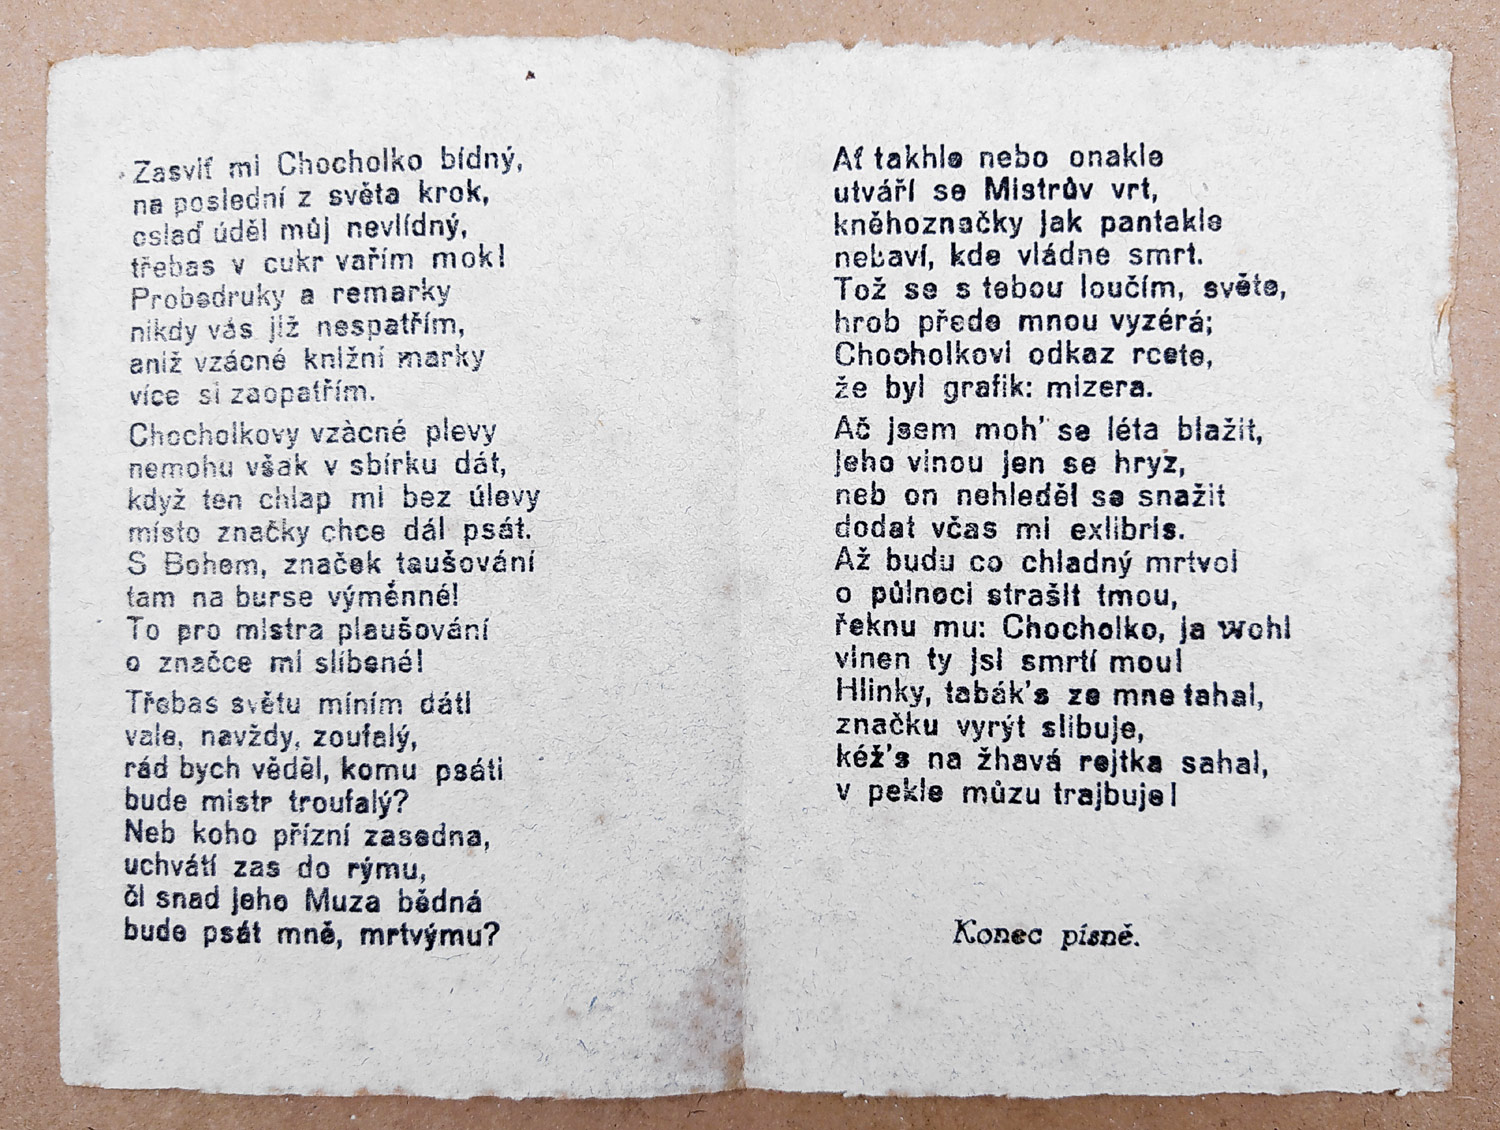 Zasviť mi Chocholko bídný,
na poslední z světa krok,
oslaď úděl můj nevlídný,
třebas v cukr vařím mok!
Probedruky a remarky
nikdy vás již nespatřím,
aniž vzácné knižní marky
více si zaopatřím.
Chocholkovy vzàcné plevy
nemohu však v sbírku dát,
když ten chlap mi bez úlevy
místo značky chce dál psát.
S Bohem, značek taušování
tam na burse výměnné!
To pro mistra plaušování
o značce mi slíbené!
Třebas světu míním dáti
vale, navždy, zoufalý,
rád bych věděl, komu psáti
bude mistr troufalý?
Neb koho přízní zasedna,
uchvátí zas do rýmu,
či snad jeho Muza bědná
bude psát mně, mrtvýmu?
Ať takhle nebo onakle
utváří se Mistrův vrt,
kněhoznačky jak pantakle
nebaví, kde vládne smrt.
Tož se s tebou loučím, světe,
hrob přede mnou vyzérá;
Chocholkovi odkaz rcete,
že byl grafik: mizera.
Ač jsem moh' se léta blažit,
jeho vinou jen se hryz,
neb on nehleděl se snažit
dodat včas mi exlibris.
Až budu co chladný mrtvol
o půlnoci strašit tmou,
řeknu mu: Chocholko, ja wohl
vinen ty jsi smrtí mou!
Hlinky, tabák's ze mne tahal,
značku vyrýt slibuje,
kéž's na žhavá rejtka sahal,
v pekle můzu trajbuje!
Konec písně.